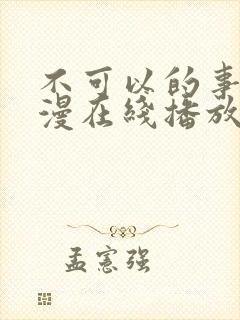 不可以的事
漫在线播放
孟宪强